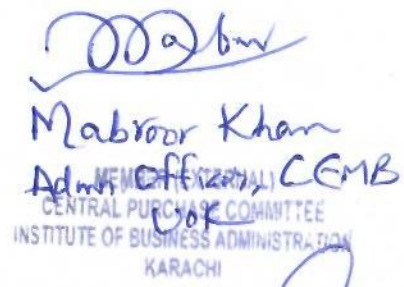 Mabroor Khan
Admn Officer, CEMB
MEMBER (EXTERNAL)
CENTRAL PURCHASE COMMITTEE
UoK
INSTITUTE OF BUSINESS ADMINISTRATION
KARACHI